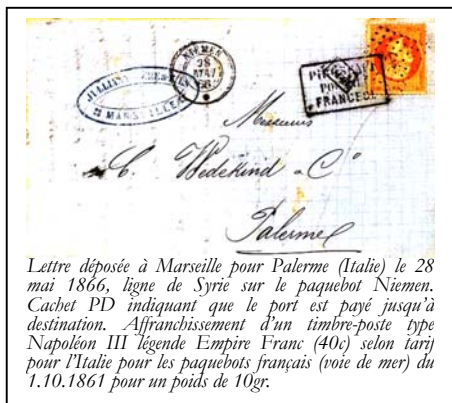 NIEMEN
28
MAI
66
JULLIANY
MARSEILLE
PIROSCAFI
POSTALI
FRANCESI
Messieurs
C. Wedekind & Cº
Palerme
Lettre déposée à Marseille pour Palerme (Italie) le 28
mai 1866, ligne de Syrie sur le paquebot Niemen.
Cachet PD indiquant que le port est payé jusqu'à
destination. Affranchissement d'un timbre-poste type
Napoléon III légende Empire Franc (40c) selon tarif
pour l'Italie pour les paquebots français (voie de mer) du
1.10.1861 pour un poids de 10gr.